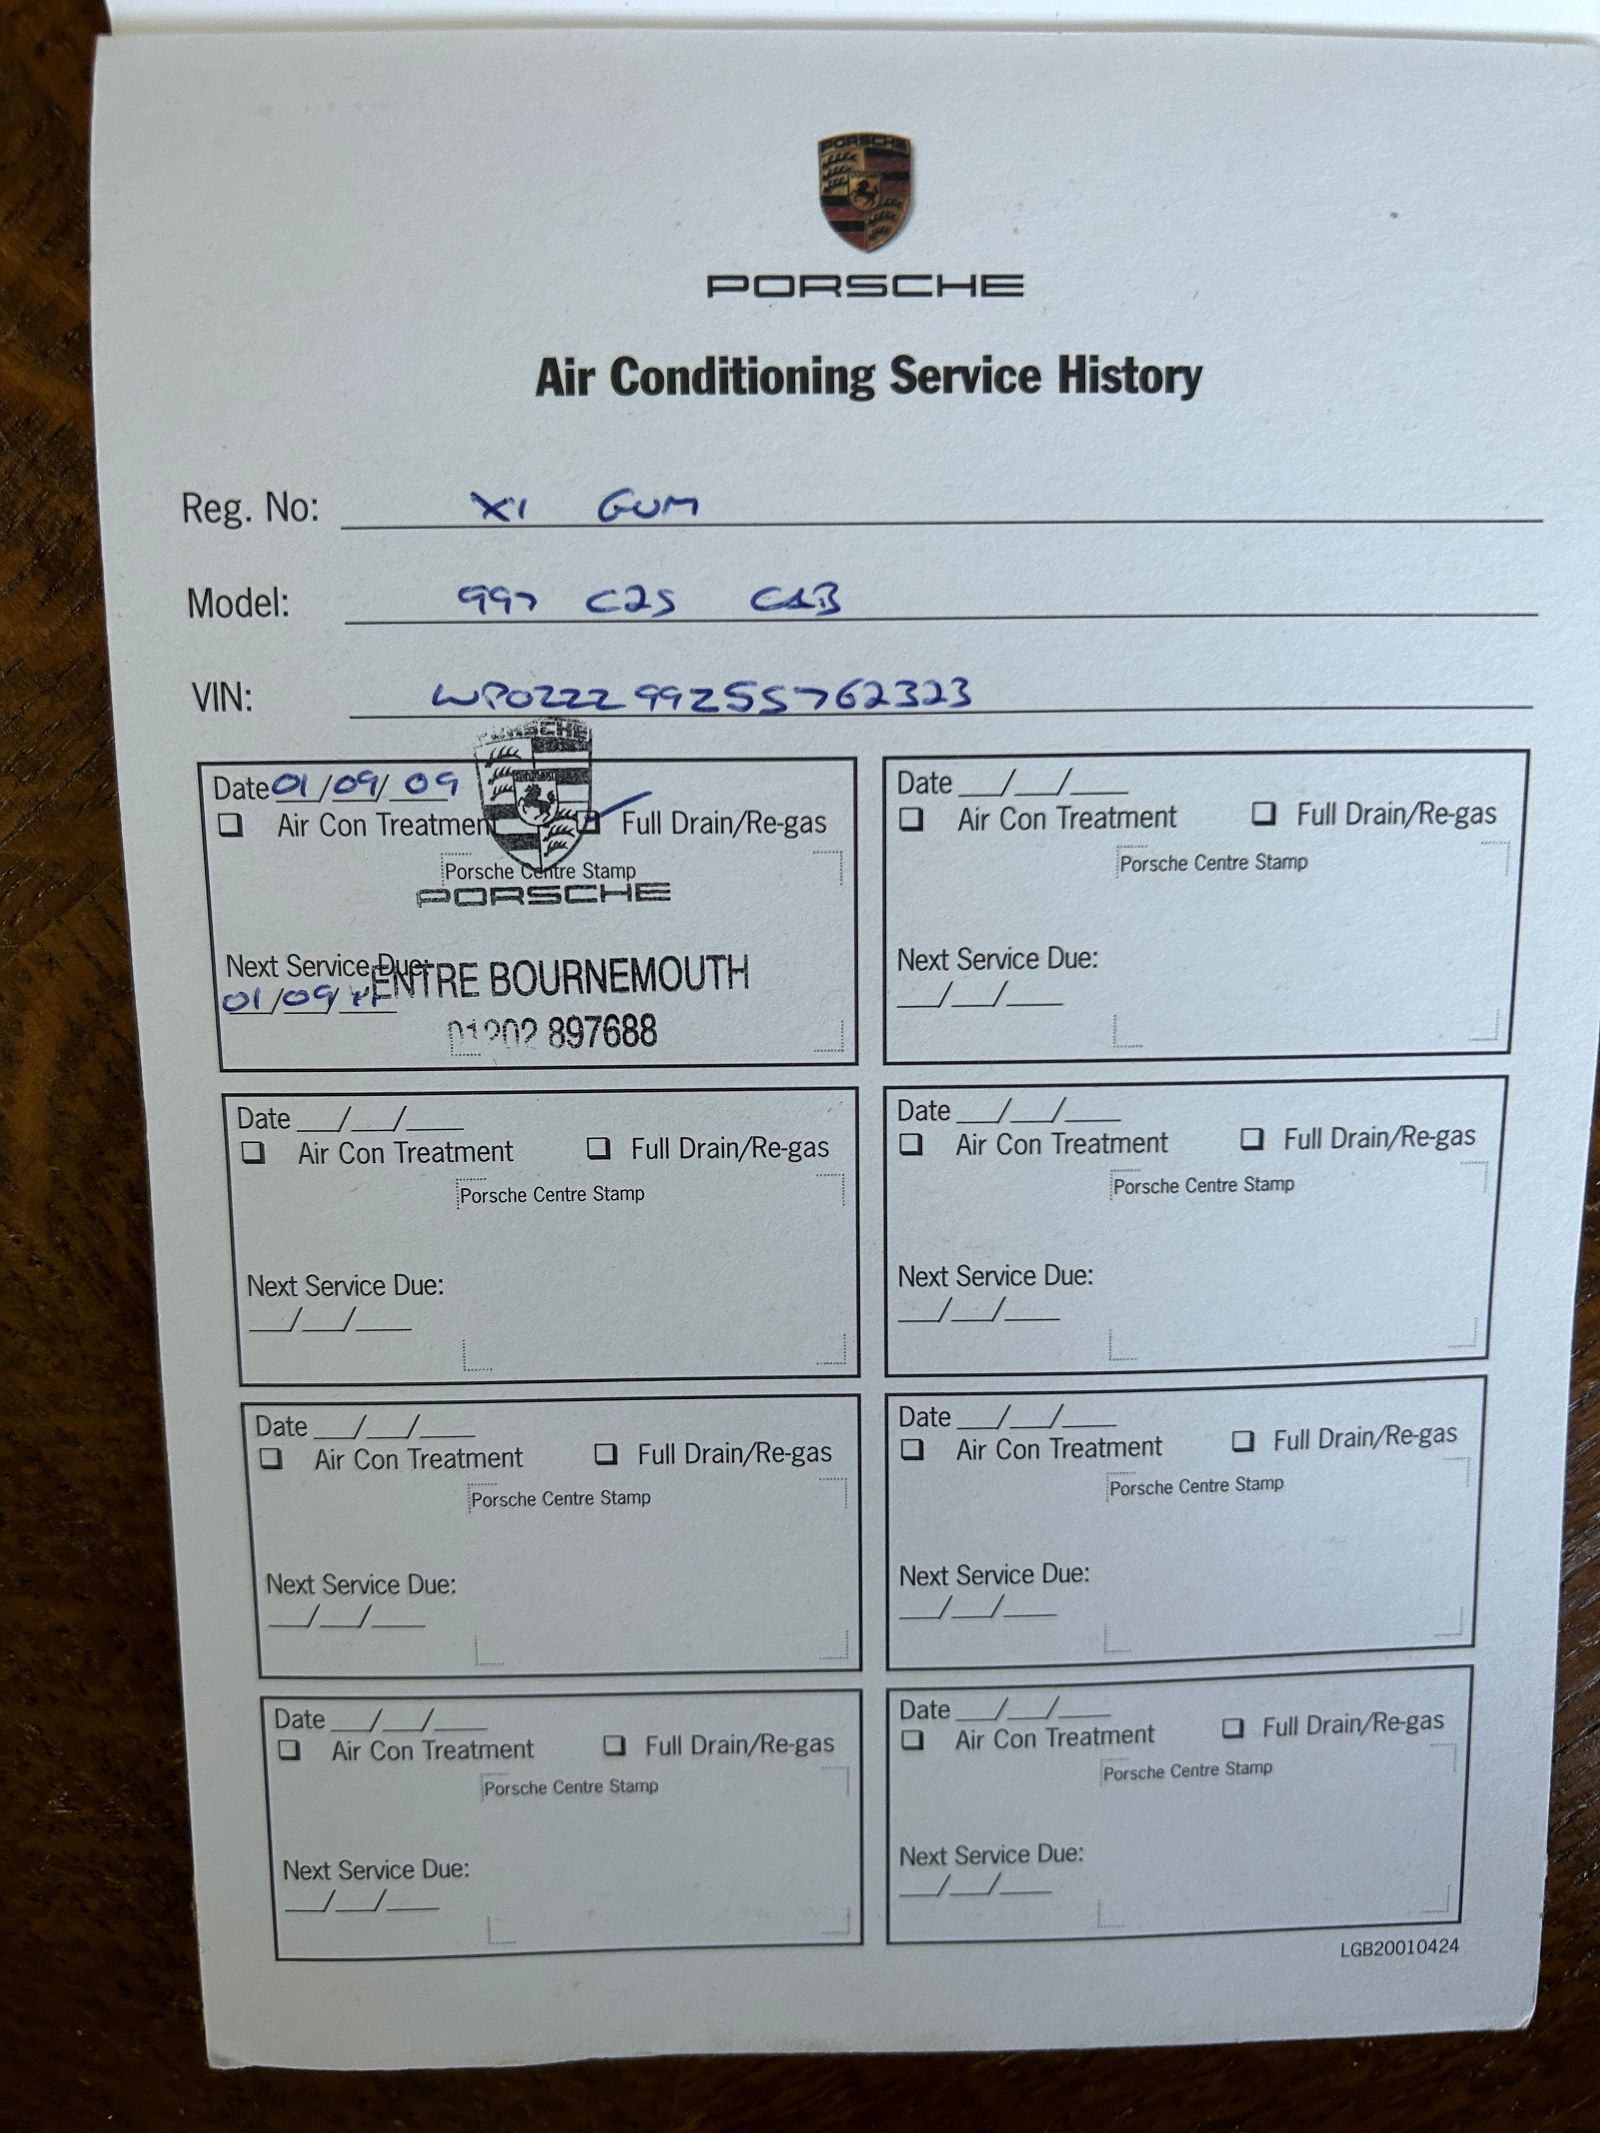 PORSCHE
PORSCHE
Air Conditioning Service History
Reg. No: X1 GUM
Model: 997 C2S CAB
VIN: WP0ZZZ99Z5S762323
PORSCHE
Date 01/09/09
Air Con Treatment Full Drain/Re-gas
Porsche Centre Stamp
PORSCHE
Next Service Due:
ENTRE BOURNEMOUTH
01/09/11
01202 897688
Date __/__/___
Air Con Treatment Full Drain/Re-gas
Porsche Centre Stamp
Next Service Due:
__/__/___
Date __/__/___
Air Con Treatment Full Drain/Re-gas
Porsche Centre Stamp
Next Service Due:
__/__/___
Date __/__/___
Air Con Treatment Full Drain/Re-gas
Porsche Centre Stamp
Next Service Due:
__/__/___
Date __/__/___
Air Con Treatment Full Drain/Re-gas
Porsche Centre Stamp
Next Service Due:
__/__/___
Date __/__/___
Air Con Treatment Full Drain/Re-gas
Porsche Centre Stamp
Next Service Due:
__/__/___
Date __/__/___
Air Con Treatment Full Drain/Re-gas
Porsche Centre Stamp
Next Service Due:
__/__/___
Date __/__/___
Air Con Treatment Full Drain/Re-gas
Porsche Centre Stamp
Next Service Due:
__/__/___
LGB20010424